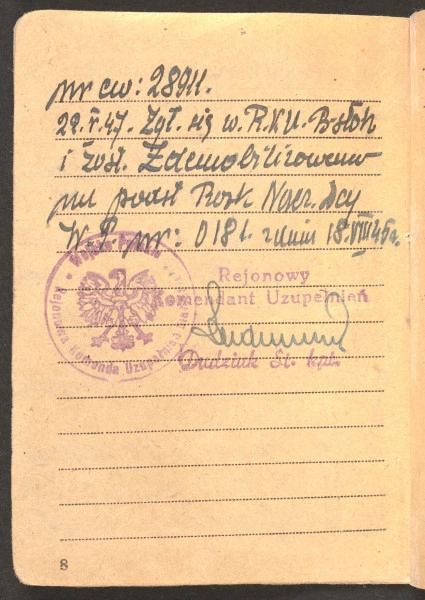 nr ew: 28911.
22.V.47. Zgł. się w R.K.U. B-stok
i zost. Zdemobilizowany
na podst Rozk Nacz. Dcy
W.P. nr: 0181. z dnia 18.VIII 45 r.
Rejonowy
Komendant Uzupełnień
Dudziuk St. kpt.
Wojsko Polskie
Rejonowa Komenda Uzupełnień
8